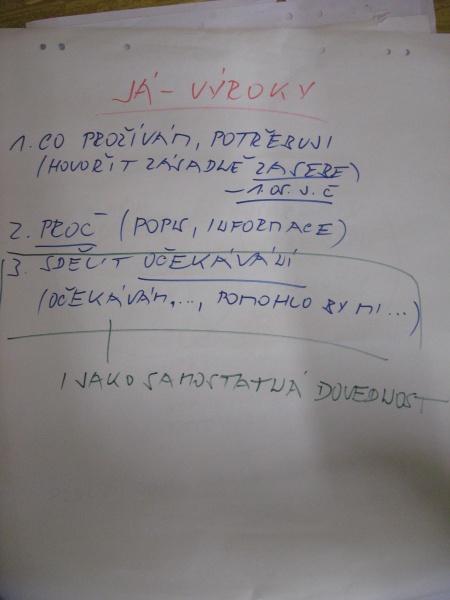 JÁ - VÝROKY
1. CO PROŽÍVÁM, POTŘEBUJI
(HOVOŘIT ZÁSADNĚ ZA SEBE)
- 1. OS. J. Č
2. PROČ (POPIS, INFORMACE)
3. SDĚLIT OČEKÁVÁNÍ
(OČEKÁVÁM,..., POMOHLO BY MI ...)
I JAKO SAMOSTATNÁ DOVEDNOST